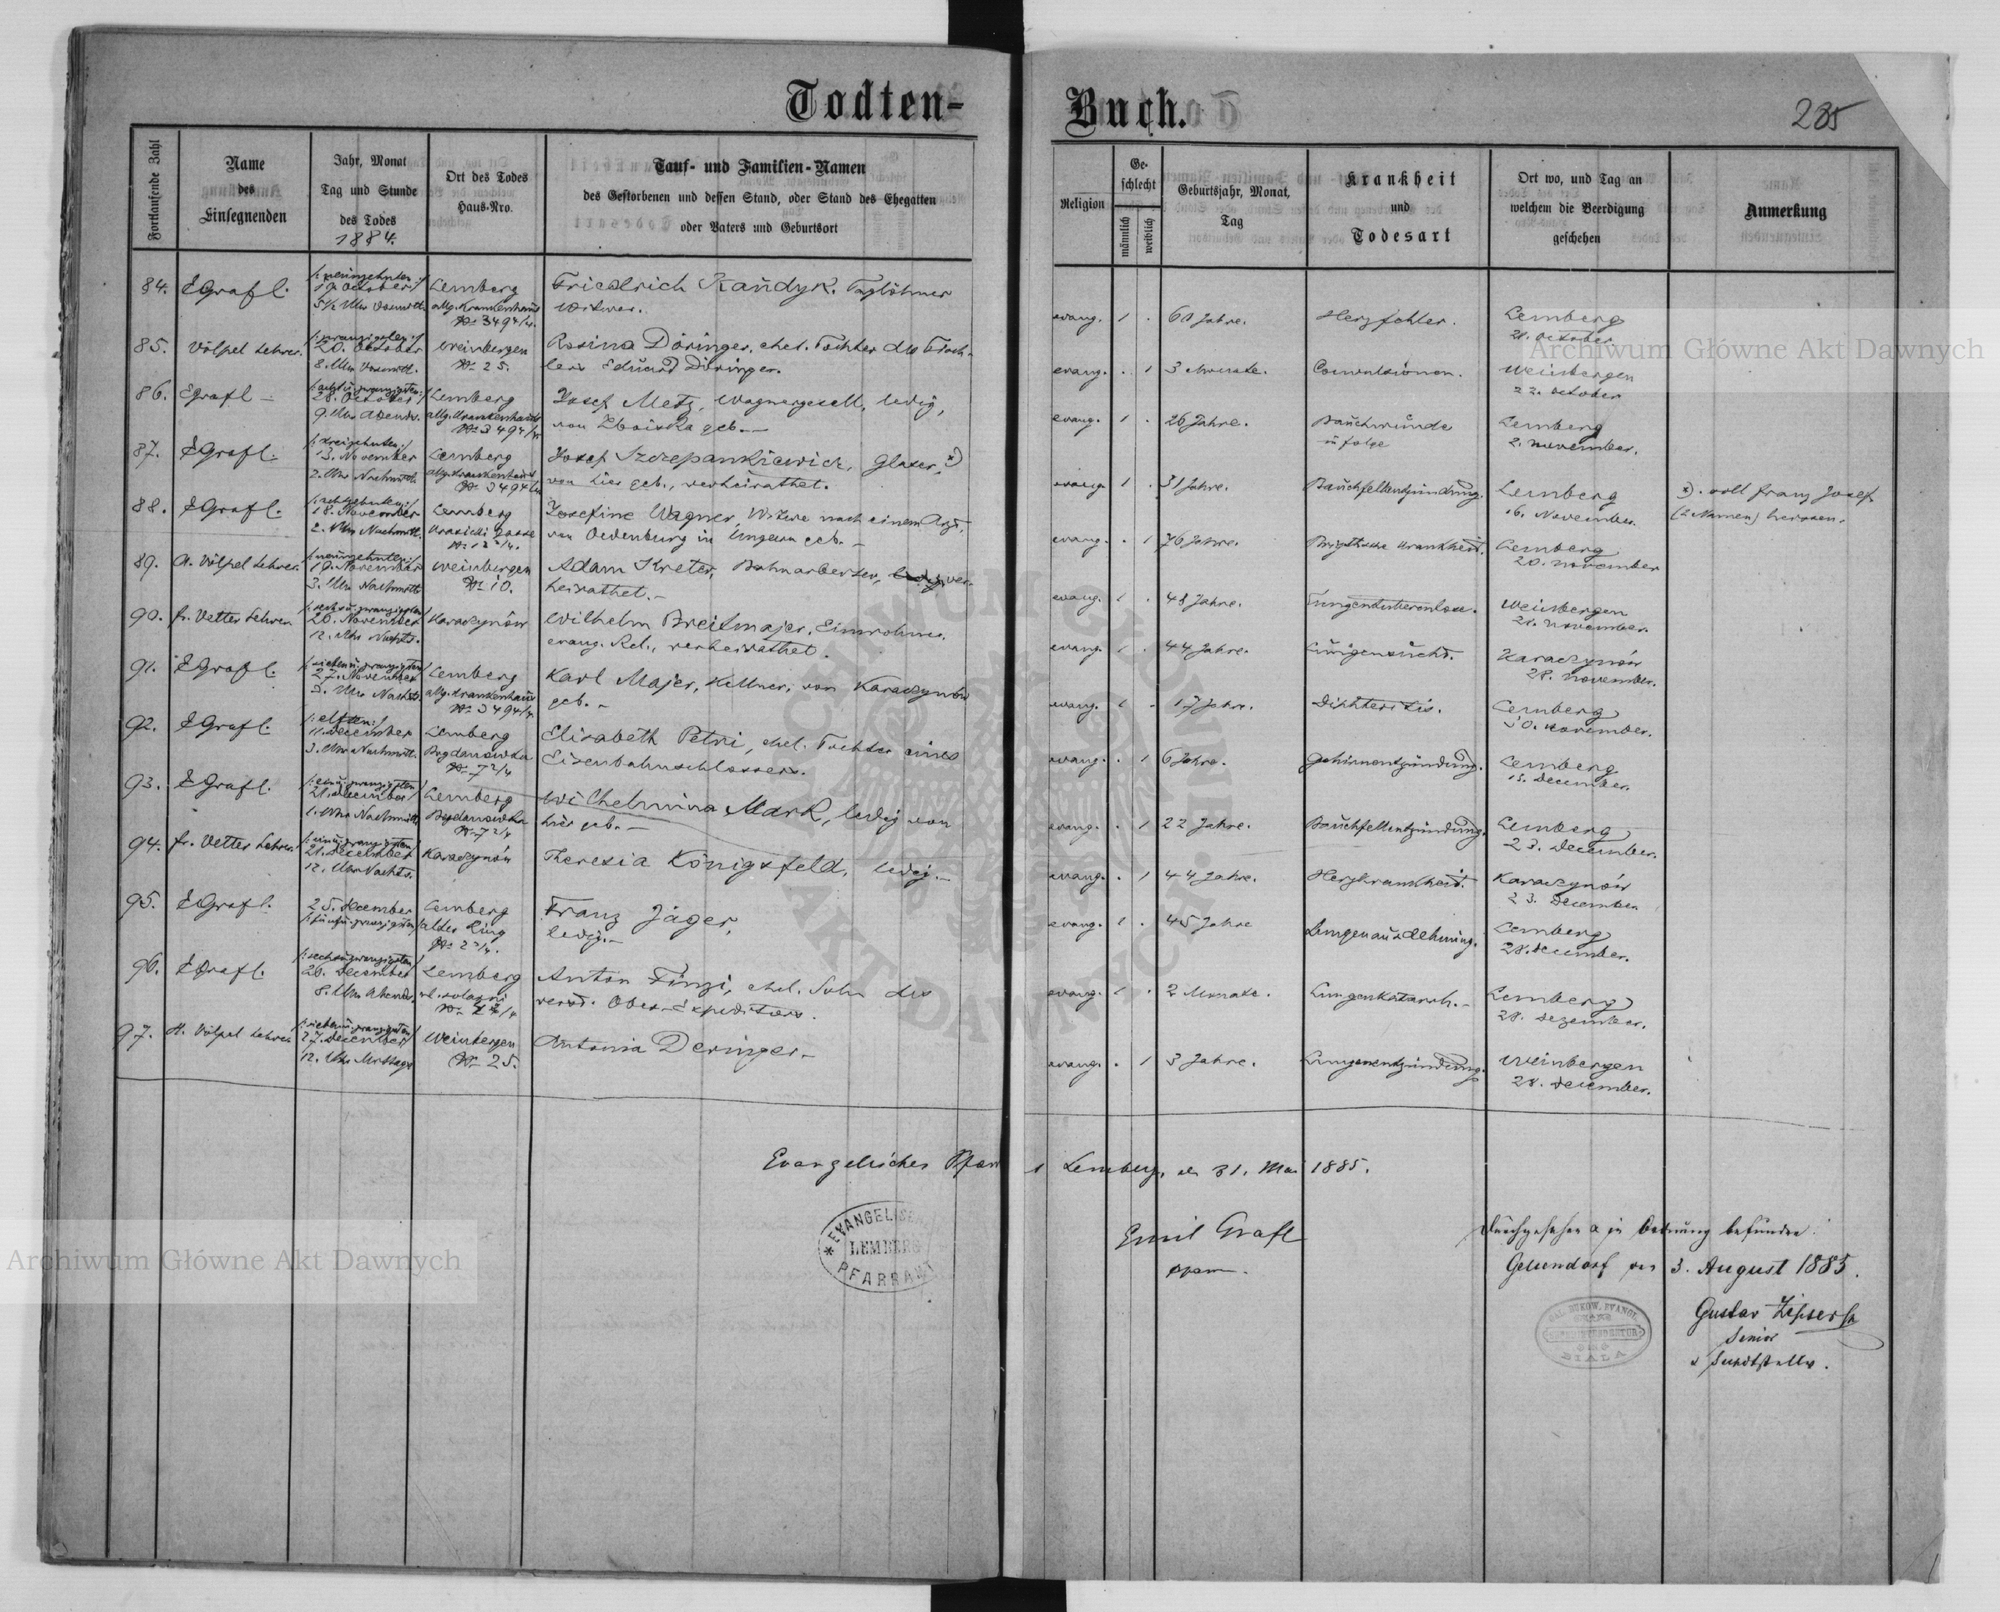 Todten-Buch.
285
Fortlaufende Zahl
Name
des
Einsegnenden
Jahr, Monat
Tag und Stunde
des Todes
1884.
Ort des Todes
Haus-Nro.
Tauf- und Familien-Namen
des Gestorbenen und dessen Stand, oder Stand des Ehegatten
oder Vaters und Geburtsort
Religion
Ge-
schlecht
männlich
weiblich
Geburtsjahr, Monat,
Tag
Krankheit
und
Todesart
Ort wo, und Tag an
welchem die Beerdigung
geschehen
Anmerkung
84. EGrafl.
19. October
5½ Uhr Vormitt.
Lemberg
allg. Krankenhaus
No 3494/4.
Friedrich Kandyk. Taglöhner
Witwer.
evang. 1 . 60 Jahre. Herzfehler. Lemberg
21. October
85. Völpel Lehrer.
20. October
8. Uhr Vormitt.
Weinbergen
No 25.
Rosina Döringer, ehel. Tochter des Tisch-
lers Eduard Döringer.
evang. . 1 3 Monate. Convulsionen. Weinbergen
22. October
86. EGrafl –
28. October
9. Uhr Abends.
Lemberg
allg. Krankenhaus
No 3494/4.
Josef Metz, Wagnergesell, ledig,
von Zboiska geb. –
evang. 1 . 26 Jahre. Bauchwunde
in folge
Lemberg
2. November.
87. EGrafl.
/: dreizehnten :/
13. November
2. Uhr Nachmitt.
Lemberg
allg. Krankenhaus
No 3494/4
Josef Szczepankiewicz, Glaser, *)
von hier geb., verheirathet.
evang. 1 . 31 Jahre. Bauchfellentzündung. Lemberg
16. November.
*). soll Franz Josef
(2 Namen) heissen.
88. EGrafl.
/: achtzehnten :/
18. November
2. Uhr Nachmitt.
Lemberg
Krasicki Gasse
Josefine Wagner, Witwe nach einem Arzt,
von Oedenburg in Ungarn geb. –
evang. . 1 76 Jahre. Brigthische Krankheit. Lemberg
20. November
89. A. Völpel Lehrer.
/: neunzehnten :/
19. November
3. Uhr Nachmitt.
Weinbergen
No 10.
Adam Kreter, Bahnarbeiter, ledig, ver-
heirathet. –
evang. 1 . 48 Jahre. Lungentuberculose. Weinbergen
21. November.
90. fr. Vetter Lehrer.
26. November
12. Uhr Nachts.
Karaczynów
Wilhelm Breitmajer, Einwohner
evang. Rel., verheirathet.
evang. 1 . 44 Jahre. Lungensucht. Karaczynów
28. November.
91. EGrafl.
27. November
3. Uhr Nachts.
Lemberg
allg. Krankenhaus
No 3494/4.
Karl Majer, Kellner, von Karaczynów
geb. –
evang. 1 . 17 Jahre. Diphteritis. Lemberg
30. November.
92. EGrafl.
/: elften :/
11. December
3. Uhr Nachmitt.
Lemberg
Bogdanowka
No 7 2/4
Elisabeth Petri, ehel. Tochter eines
Eisenbahnschlossers.
evang. . 1 6 Jahre. Gehirnentzündung. Lemberg
13. December.
93. EGrafl.
21. December
1. Uhr Nachmitt.
Lemberg
Bogdanowka
No 7 2/4
Wilhelmina Mark, ledig von
hier geb. –
evang. . 1 22 Jahre. Bauchfellentzündung. Lemberg
23. December.
94. fr. Vetter Lehrer.
21. December
12. Uhr Nachts.
Karaczynów
Theresia Königsfeld, ledig. –
evang. . 1 44 Jahre. Herzkrankheit. Karaczynów
23. December
95. EGrafl.
25. December
Lemberg
alter Ring
No 2 2/4.
Franz Jäger,
ledig. –
evang. 1 . 45 Jahre Lungenausdehnung. Lemberg
28. December.
96. EGrafl.
26. December
8. Uhr Abends.
Lemberg
Anton Finzi, ehel. Sohn des
verst. Ober-Expeditors.
evang. 1 . 2 Monate. Lungenkatarrh. – Lemberg
28. Dezember.
97. A. Völpel Lehrer
27. December
12. Uhr Mittags
Weinbergen
No 25.
Antonia Deringer –
evang. . 1 3 Jahre. Lungenentzündung. Weinbergen
28. December.
Evangelisches Pfarr
Lemberg, den 31. Mai 1885.
Emil Grafl
Pfarrer.
* EVANGELISCHES
LEMBERG
PFARRAMT
Durchgesehen u. in Ordnung befunden.
Gelsendorf den 3. August 1885.
Gustav Zipser
Senior
BIALA
Archiwum Główne Akt Dawnych
Archiwum Główne Akt Dawnych
ARCHIWUM GŁÓWNE AKT DAWNYCH